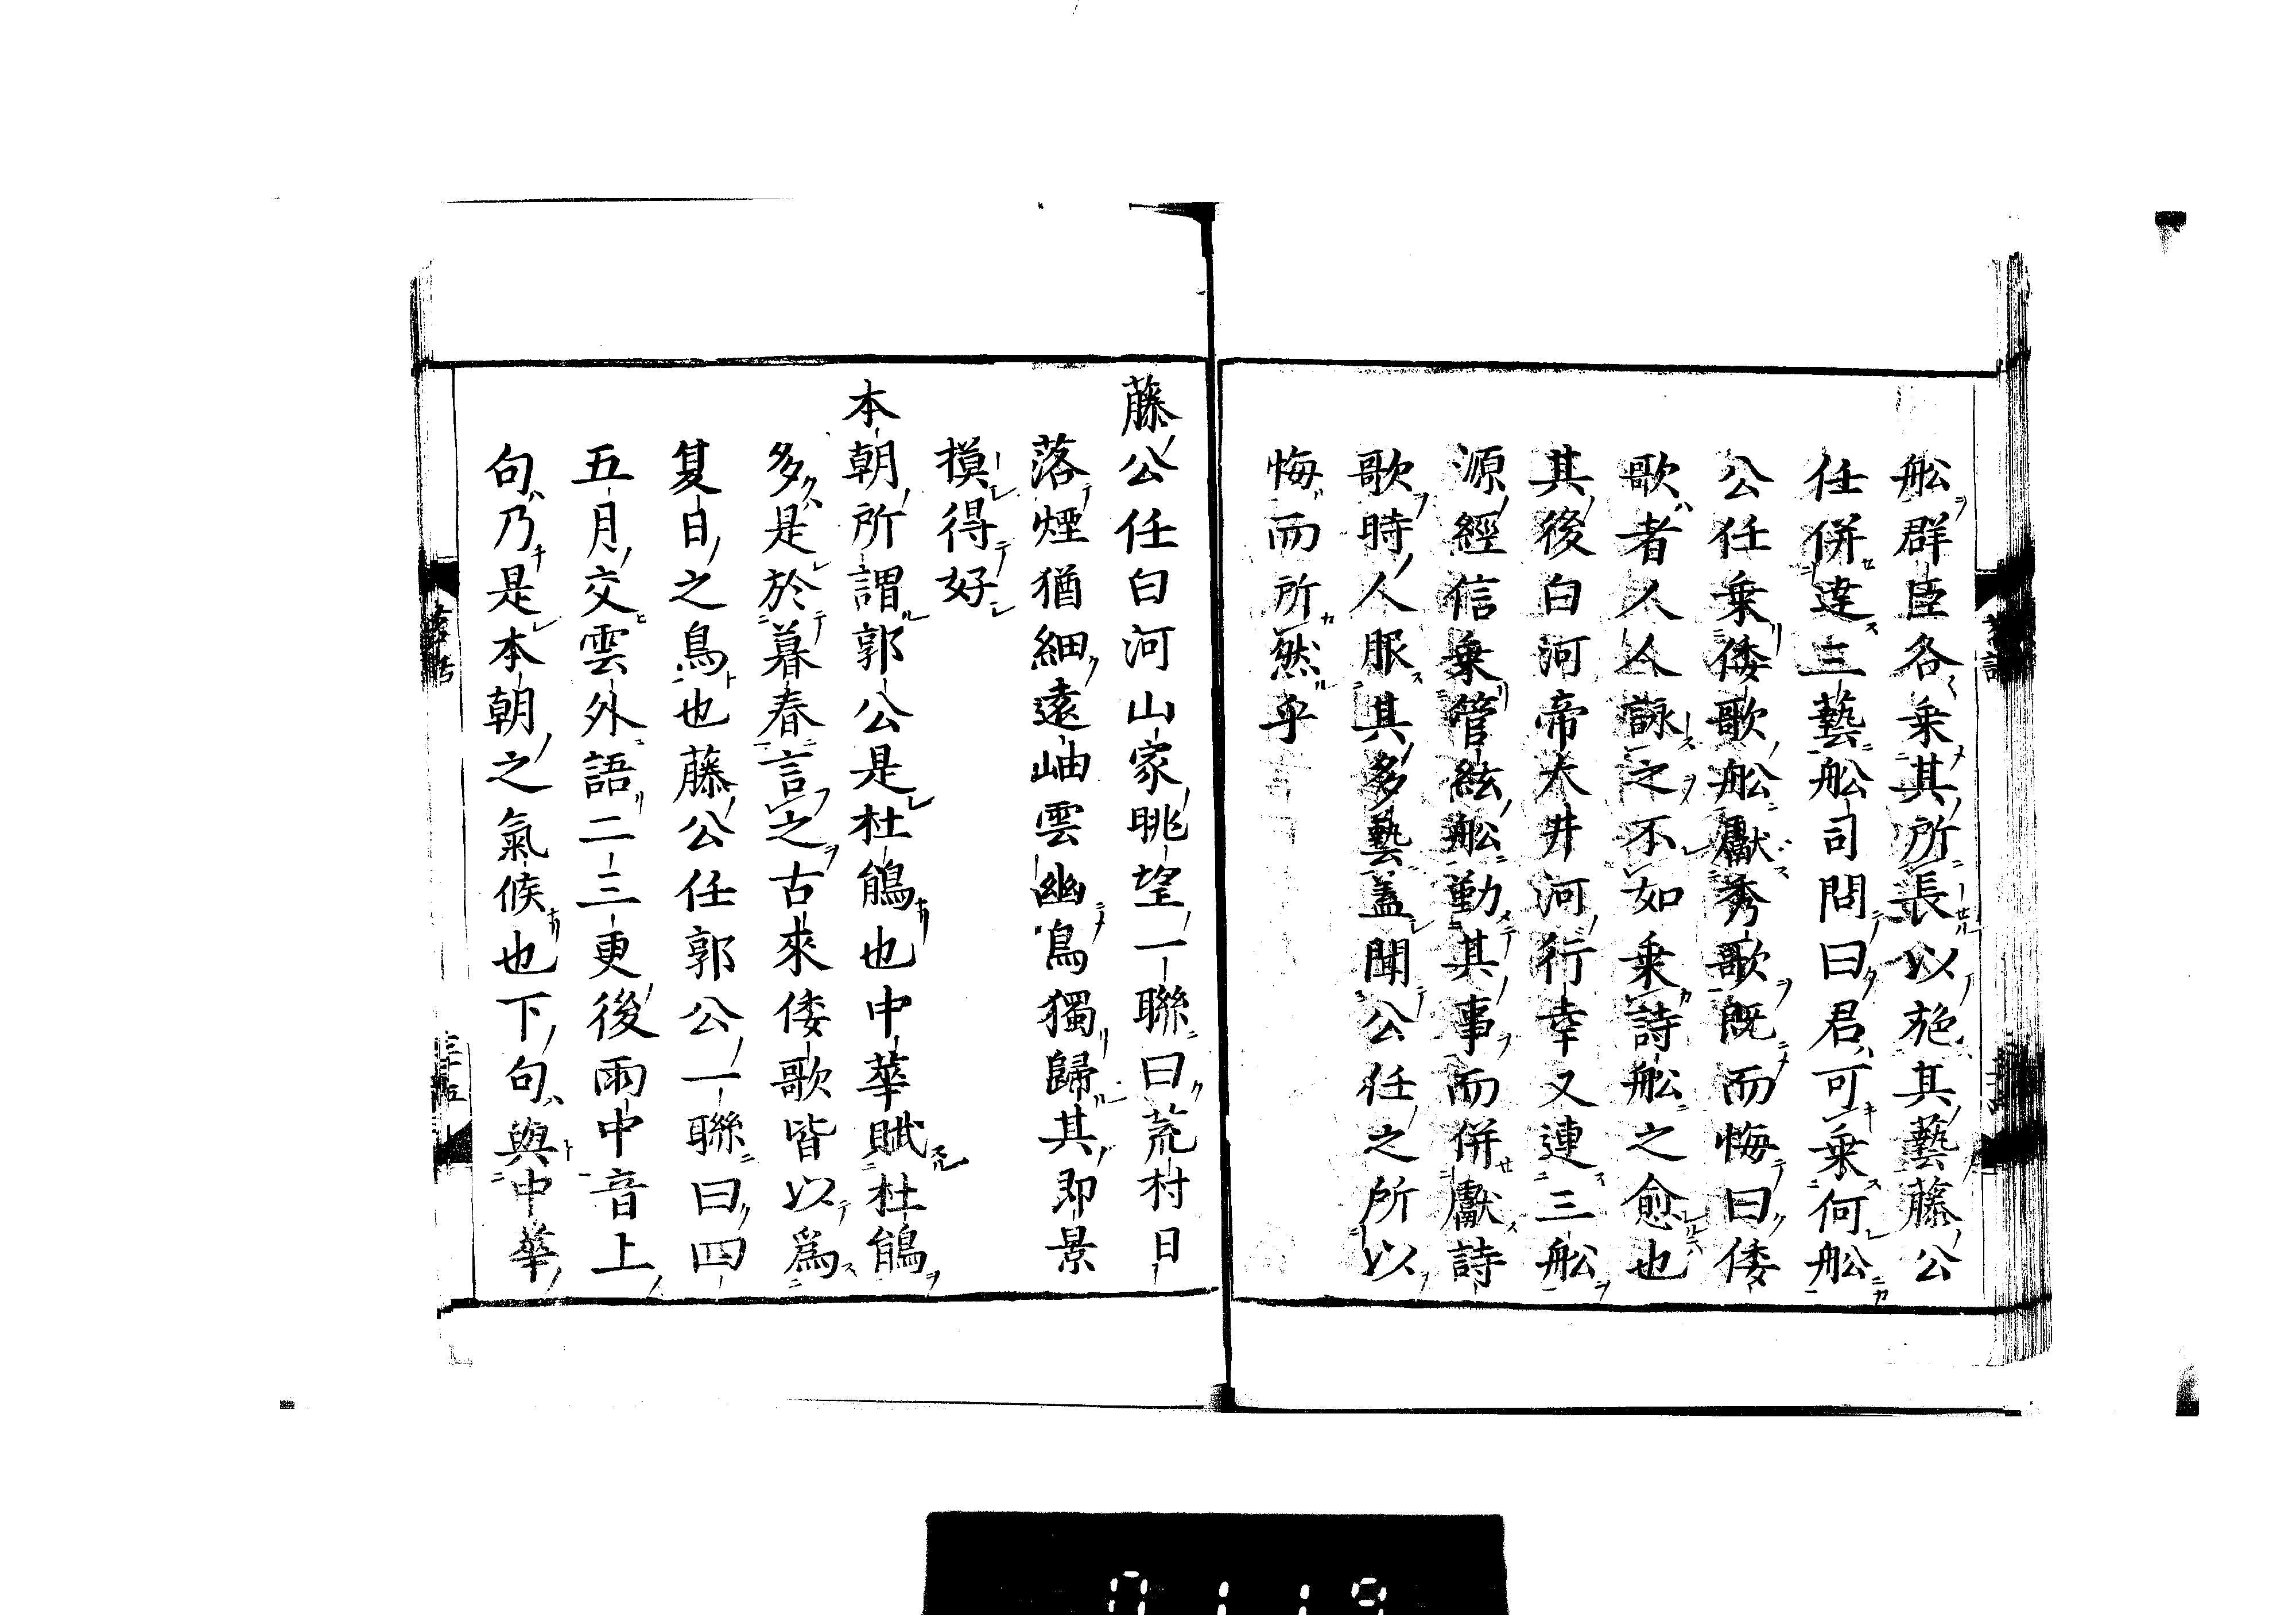 舩群臣各乗其所長以施其藝藤公
任併達三藝舩司問曰君可乗何舩
公任乗倭歌舩獻秀歌既而悔曰倭
歌者人人詠之不如乗詩舩之愈也
其後白河帝大井河行幸又連三舩
源經信乗管絃舩勤其事而併獻詩
歌時人服其多藝蓋聞公任之所以
悔而所然乎
藤公任白河山家眺望一聯曰荒村日
落煙猶細遠岫雲幽鳥獨歸其即景
摸得好
本朝所謂郭公是杜鵑也中華賦杜鵑
多是於暮春言之古來倭歌皆以爲
夏日之鳥也藤公任郭公一聯曰四
五月交雲外語二三更後雨中音上
句乃是本朝之氣候也下句與中華
0119